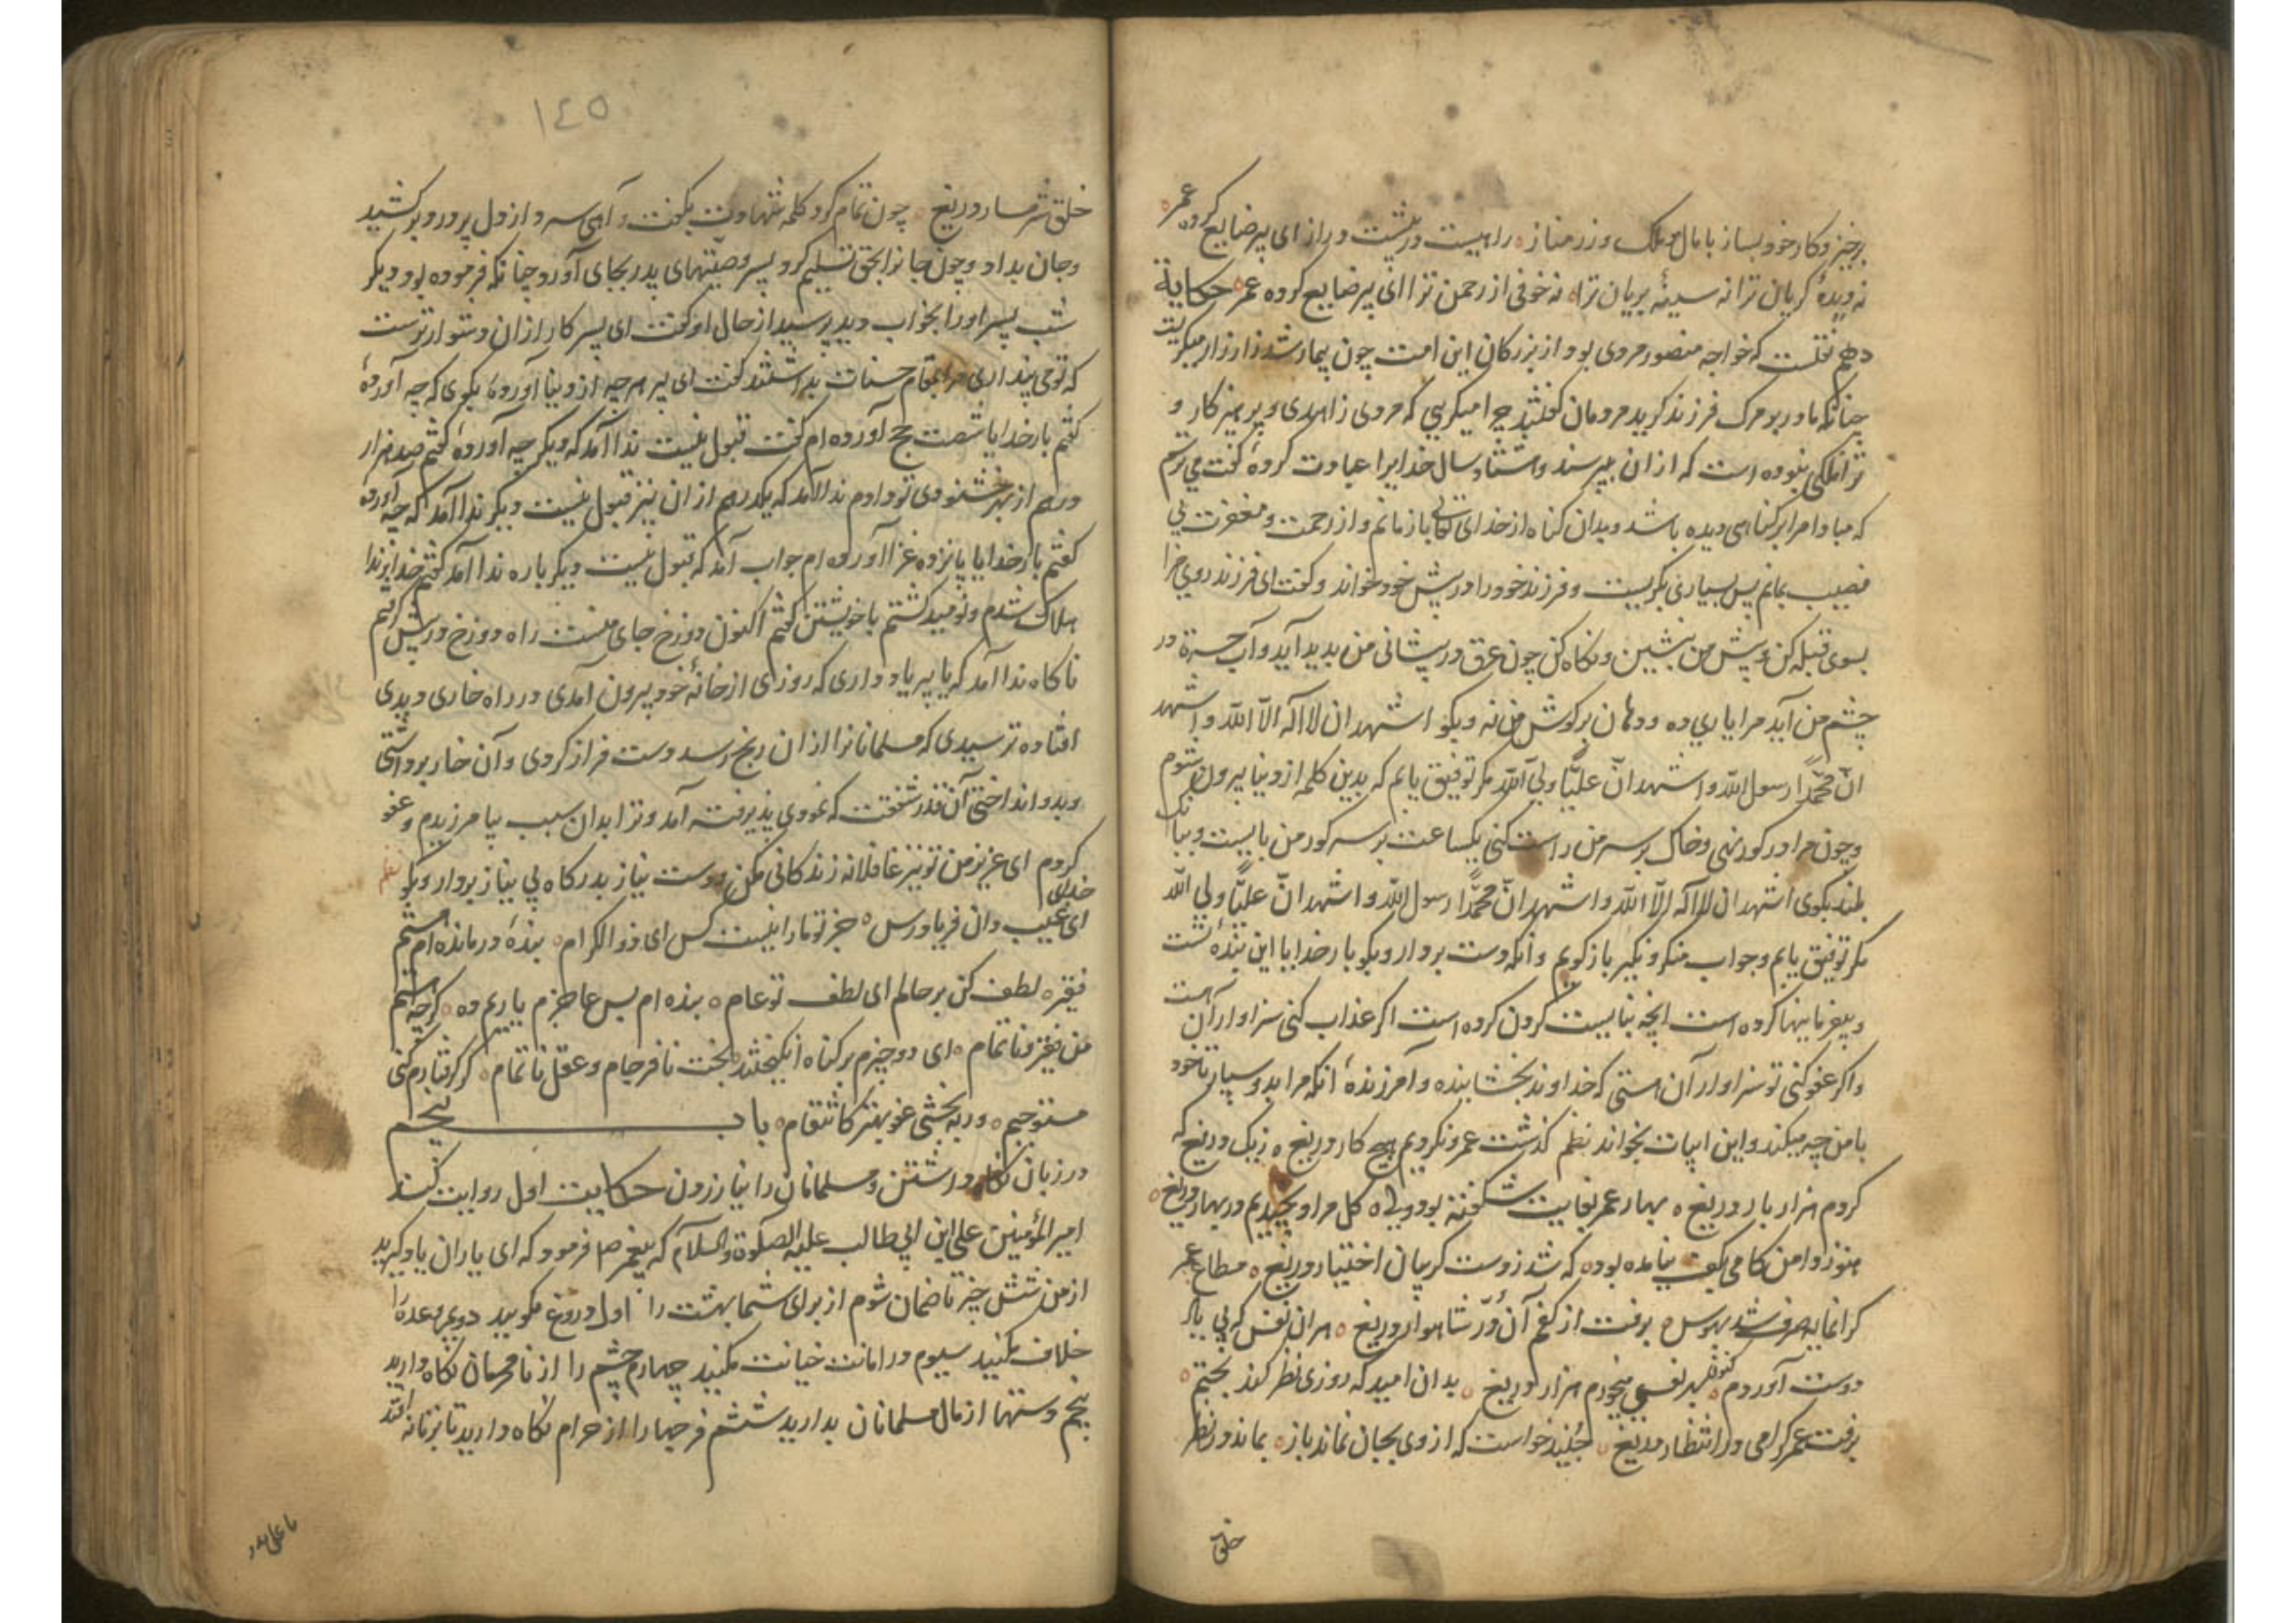 برخیز و کار خود بساز با مال و ملک و زر مناز راهیست در پیشت دراز ای پیر ضایع کرده عمر
نه دیدهٔ کریان ترا نه سینهٔ بریان ترا نه خوفی از رحمن ترا ای پیر ضایع کرده عمر حکایة
دهم نقلست که خواجه منصور مردی بود از بزرکان این امت چون بیمار شد زار زار میکریست
چنانکه مادر بر مرک فرزند کرید مردمان کفتند چرا میکریی که مردی زاهدی و پرهیزکار و
ترا ملکی نبوده است که از ان بپرسند و هشتاد سال خدایرا عبادت کردهٔ کفت می ترسم
که مبادا مرا بر کناهی دیده باشد و بدان کناه از خدای تعالی باز مانم و از رحمت و مغفرت بی
نصیب بمانم پس بسیاری بکریست و فرزند خود را در پیش خود خواند و کفت ای فرزند روی مرا
بسوی قبله کن و پیش من بنشین و نکاه کن چون عرق در پیشانی من بدید آید و آب حسرة در
چشم من آید مرا یاری ده و دهان بر کوش من نه و بکو اشهد ان لا اله الا الله و اشهد
ان محمدا رسول الله و اشهد ان علیا ولی الله مکر توفیق یابم که بدین کلمه از دنیا بیرون شوم
و چون مرا در کور نهی و خاک بر سر من راست کنی یکساعت بر سر کور من بایست و ببانک
بلند بکوی اشهد ان لا اله الا الله و اشهد ان محمدا رسول الله و اشهد ان علیا ولی الله
مکر توفیق یابم و جواب منکر و نکیر باز کویم و انکه دست بردار و بکو بار خدایا این بندهٔ تست
و بیفرمانیها کرده است انچه نبایست کردن کرده است اکر عذاب کنی سزاوار آن است
و اکر عفو کنی تو سزاوار آن هستی که خداوند بخشاینده و آمرزندهٔ انکه مرا بدو سپار تا خود
با من چه میکند و این ابیات بخواند نظم کذشت عمر و نکردیم هیچ کار دریغ زیک دریغ که
کردم هزار بار دریغ بهار عمر بغایت شکفته بود ولی کل مراد نچیدیم در بهار دریغ
هنوز دامن کامی بکف نیامده بود که شد ز دست کریبان اختیار دریغ متاع عمر
کرانمایه صرف شد بهوس برفت از کفم آن در شاهوار دریغ هران نفس که بی یاد
دوست آوردم کنون بهر نفسی میخورم هزار دریغ بدان امید که روزی نظر کند بختم
برفت عمر کرامی در انتظار دریغ جنید خواست که از وی بجهان نماند باز بماند در نظر
خلق
١٤٥
خلق شرمسار دریغ چون تمام کرد کلمه شهادت بکفت و آهی سرد از دل پر درد برکشید
و جان بداد و چون جانرا بحق تسلیم کرد پسر وصیتهای پدر بجای آورد چنانکه فرموده بود دیکر
شب پسر او را بخواب دید پرسید از حال او کفت ای پسر کار از ان دشوارترست
که تو می پنداری مرا بمقام حسنات بداشتند کفت ای پیر هر چه از دنیا آوردهٔ بکوی که چه آوردهٔ
کفتم بار خدایا شصت حج آورده ام کفت قبول نیست ندا آمد که دیکر چه آوردهٔ کفتم صد هزار
درهم از بهر خشنودی تو دادم ندا آمد که یکدرهم از ان نیز قبول نیست دیکر ندا آمد که چه آوردهٔ
کفتم بار خدایا پانزده غزا آورده ام جواب آمد که قبول نیست دیکر باره ندا آمد کفتم خداوندا
هلاک شدم و نومید کشتم با خویشتن کفتم اکنون دوزخ جای منست راه دوزخ در پیش کرفتم
ناکاه ندا آمد که یا پیر یاد داری که روزی از خانهٔ خود بیرون آمدی در راه خاری دیدی
افتاده ترسیدی که مسلمانانرا از ان رنج رسد دست فراز کردی و آن خار برداشتی
و بدور انداختی آن قدر شفقت که نمودی پذیرفته آمد و ترا بدان سبب بیامرزیدم و عفو
کردم ای عزیز من تو نیز غافلانه زندکانی مکن و دست نیاز بدرکاه بی نیاز بردار و بکو نظم
ای خدای غیب دان فریادرس جز تو ما را نیست کس ای ذو الکرام بندهٔ درمانده ام هستم
فقیر لطف کن بر حالم ای لطف تو عام بنده ام بس عاجزم یاریم ده کرچه هستم
من بغیر و ناتمام ای دو چیزم بر کناه انکیختند بخت نافرجام و عقل ناتمام کر کرفتارم کنی
مستوجبم ور به بخشی عفو بهتر کانتقام باب پنجم
در زبان نکاه داشتن و مسلمانان را نیازردن حکایت اول روایت کند
امیر المؤمنین علی ابن ابی طالب علیه الصلوة و السلام که پیغمبر ص فرمود که ای یاران یاد کیرید
از من شش چیز تا ضمان شوم از برای شما بهشت را اول دروغ مکویید دویم وعده را
خلاف مکنید سیوم در امانت خیانت مکنید چهارم چشم را از نامحرمان نکاه دارید
پنجم دستها از مال مسلمانان بدارید ششم فرجها را از حرام نکاه دارید تا بزنا نه افتد